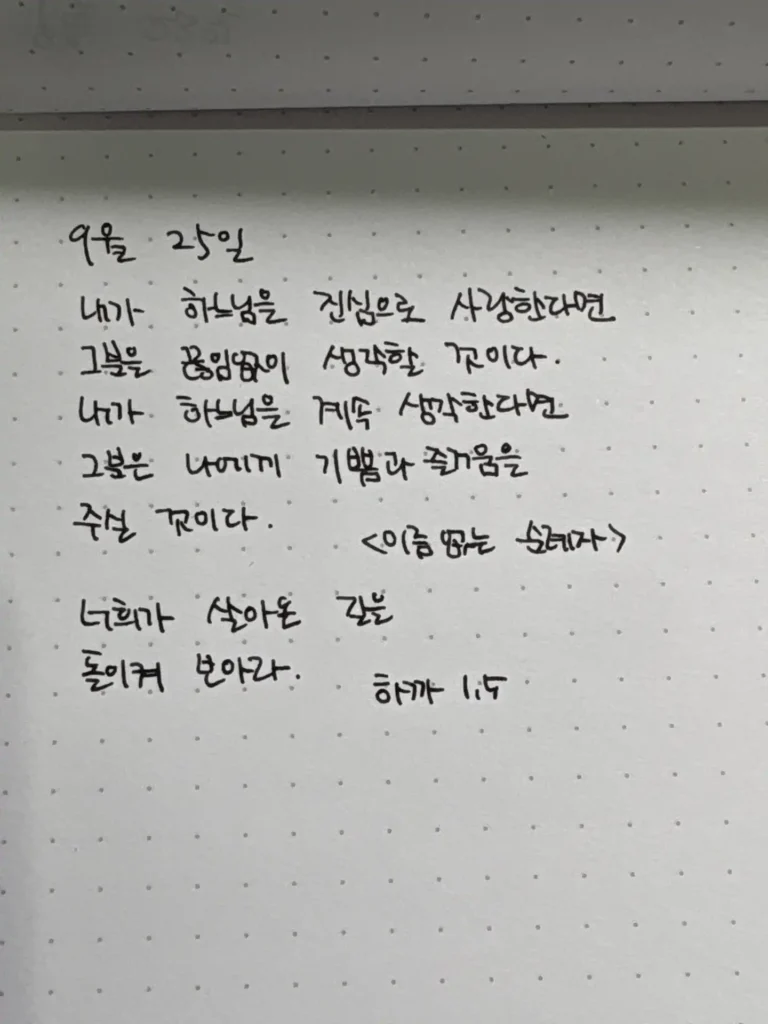 9월 25일
내가 하느님을 진심으로 사랑한다면
그분을 끊임없이 생각할 것이다.
내가 하느님을 계속 생각한다면
그분은 나에게 기쁨과 즐거움을
주실 것이다.
<이름 없는 순례자>
너희가 살아온 길을
돌이켜 보아라.
하까 1,5